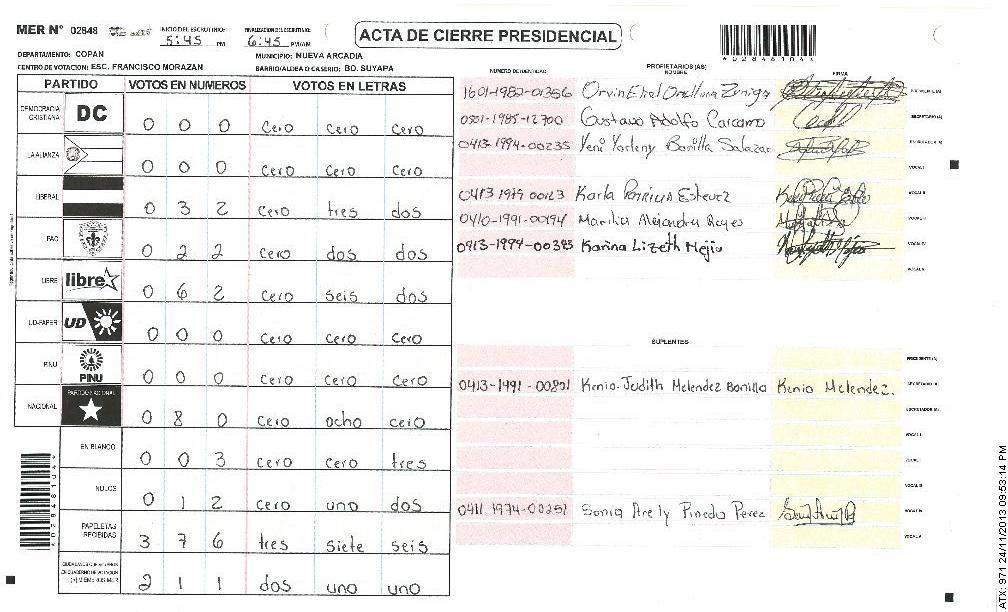 MER Nº 02848
INICIO DEL ESCRUTINIO: 5:45 PM
FINALIZACION DEL ESCRUTINIO: 6:45 PM/AM
ACTA DE CIERRE PRESIDENCIAL
*02848104*
DEPARTAMENTO: COPAN
MUNICIPIO: NUEVA ARCADIA
CENTRO DE VOTACION: ESC. FRANCISCO MORAZAN
BARRIO/ALDEA O CASERIO: BO. SUYAPA
PARTIDO VOTOS EN NUMEROS VOTOS EN LETRAS
DEMOCRACIA CRISTIANA DC 0 0 0 cero cero cero
LA ALIANZA 0 0 0 cero cero cero
LIBERAL 0 3 2 cero tres dos
PAC 0 2 2 cero dos dos
LIBRE libre 0 6 2 cero seis dos
UD-FAPER UD 0 0 0 cero cero cero
PINU PINU 0 0 0 cero cero cero
NACIONAL PARTIDO NACIONAL 0 8 0 cero ocho cero
EN BLANCO 0 0 3 cero cero tres
NULOS 0 1 2 cero uno dos
PAPELETAS RECIBIDAS 3 7 6 tres siete seis
CIUDADANOS QUE VOTARON EN CUADERNO DE VOTACION (+) MIEMBROS MER 2 1 1 dos uno uno
*02848104*
NUMERO DE IDENTIDAD PROPIETARIOS (AS) NOMBRE FIRMA
1601-1982-01356 Orvin Elial Orellana Zuniga PRESIDENTE (A)
0801-1985-12700 Gustavo Adolfo Carcamo SECRETARIO (A)
0413-1994-00235 Yeni Yorleny Bonilla Salazar ESCRUTADOR (A)
VOCAL I
0413 1979 00123 Karla Patricia Estevez VOCAL II
0410-1991-00194 Marilia Alejandra Reyes VOCAL III
0413-1994-00385 Karina Lizeth Mejia VOCAL IV
VOCAL V
SUPLENTES
PRESIDENTE (A)
0413-1991-00801 Kenia Judith Melendez Bonilla Kenia Melendez. SECRETARIO (A)
ESCRUTADOR (A)
VOCAL I
VOCAL II
VOCAL III
0411 1974-00251 Sonia Arely Pineda Perez VOCAL IV
VOCAL V
ATX: 971 24/11/2013 09:53:14 PM